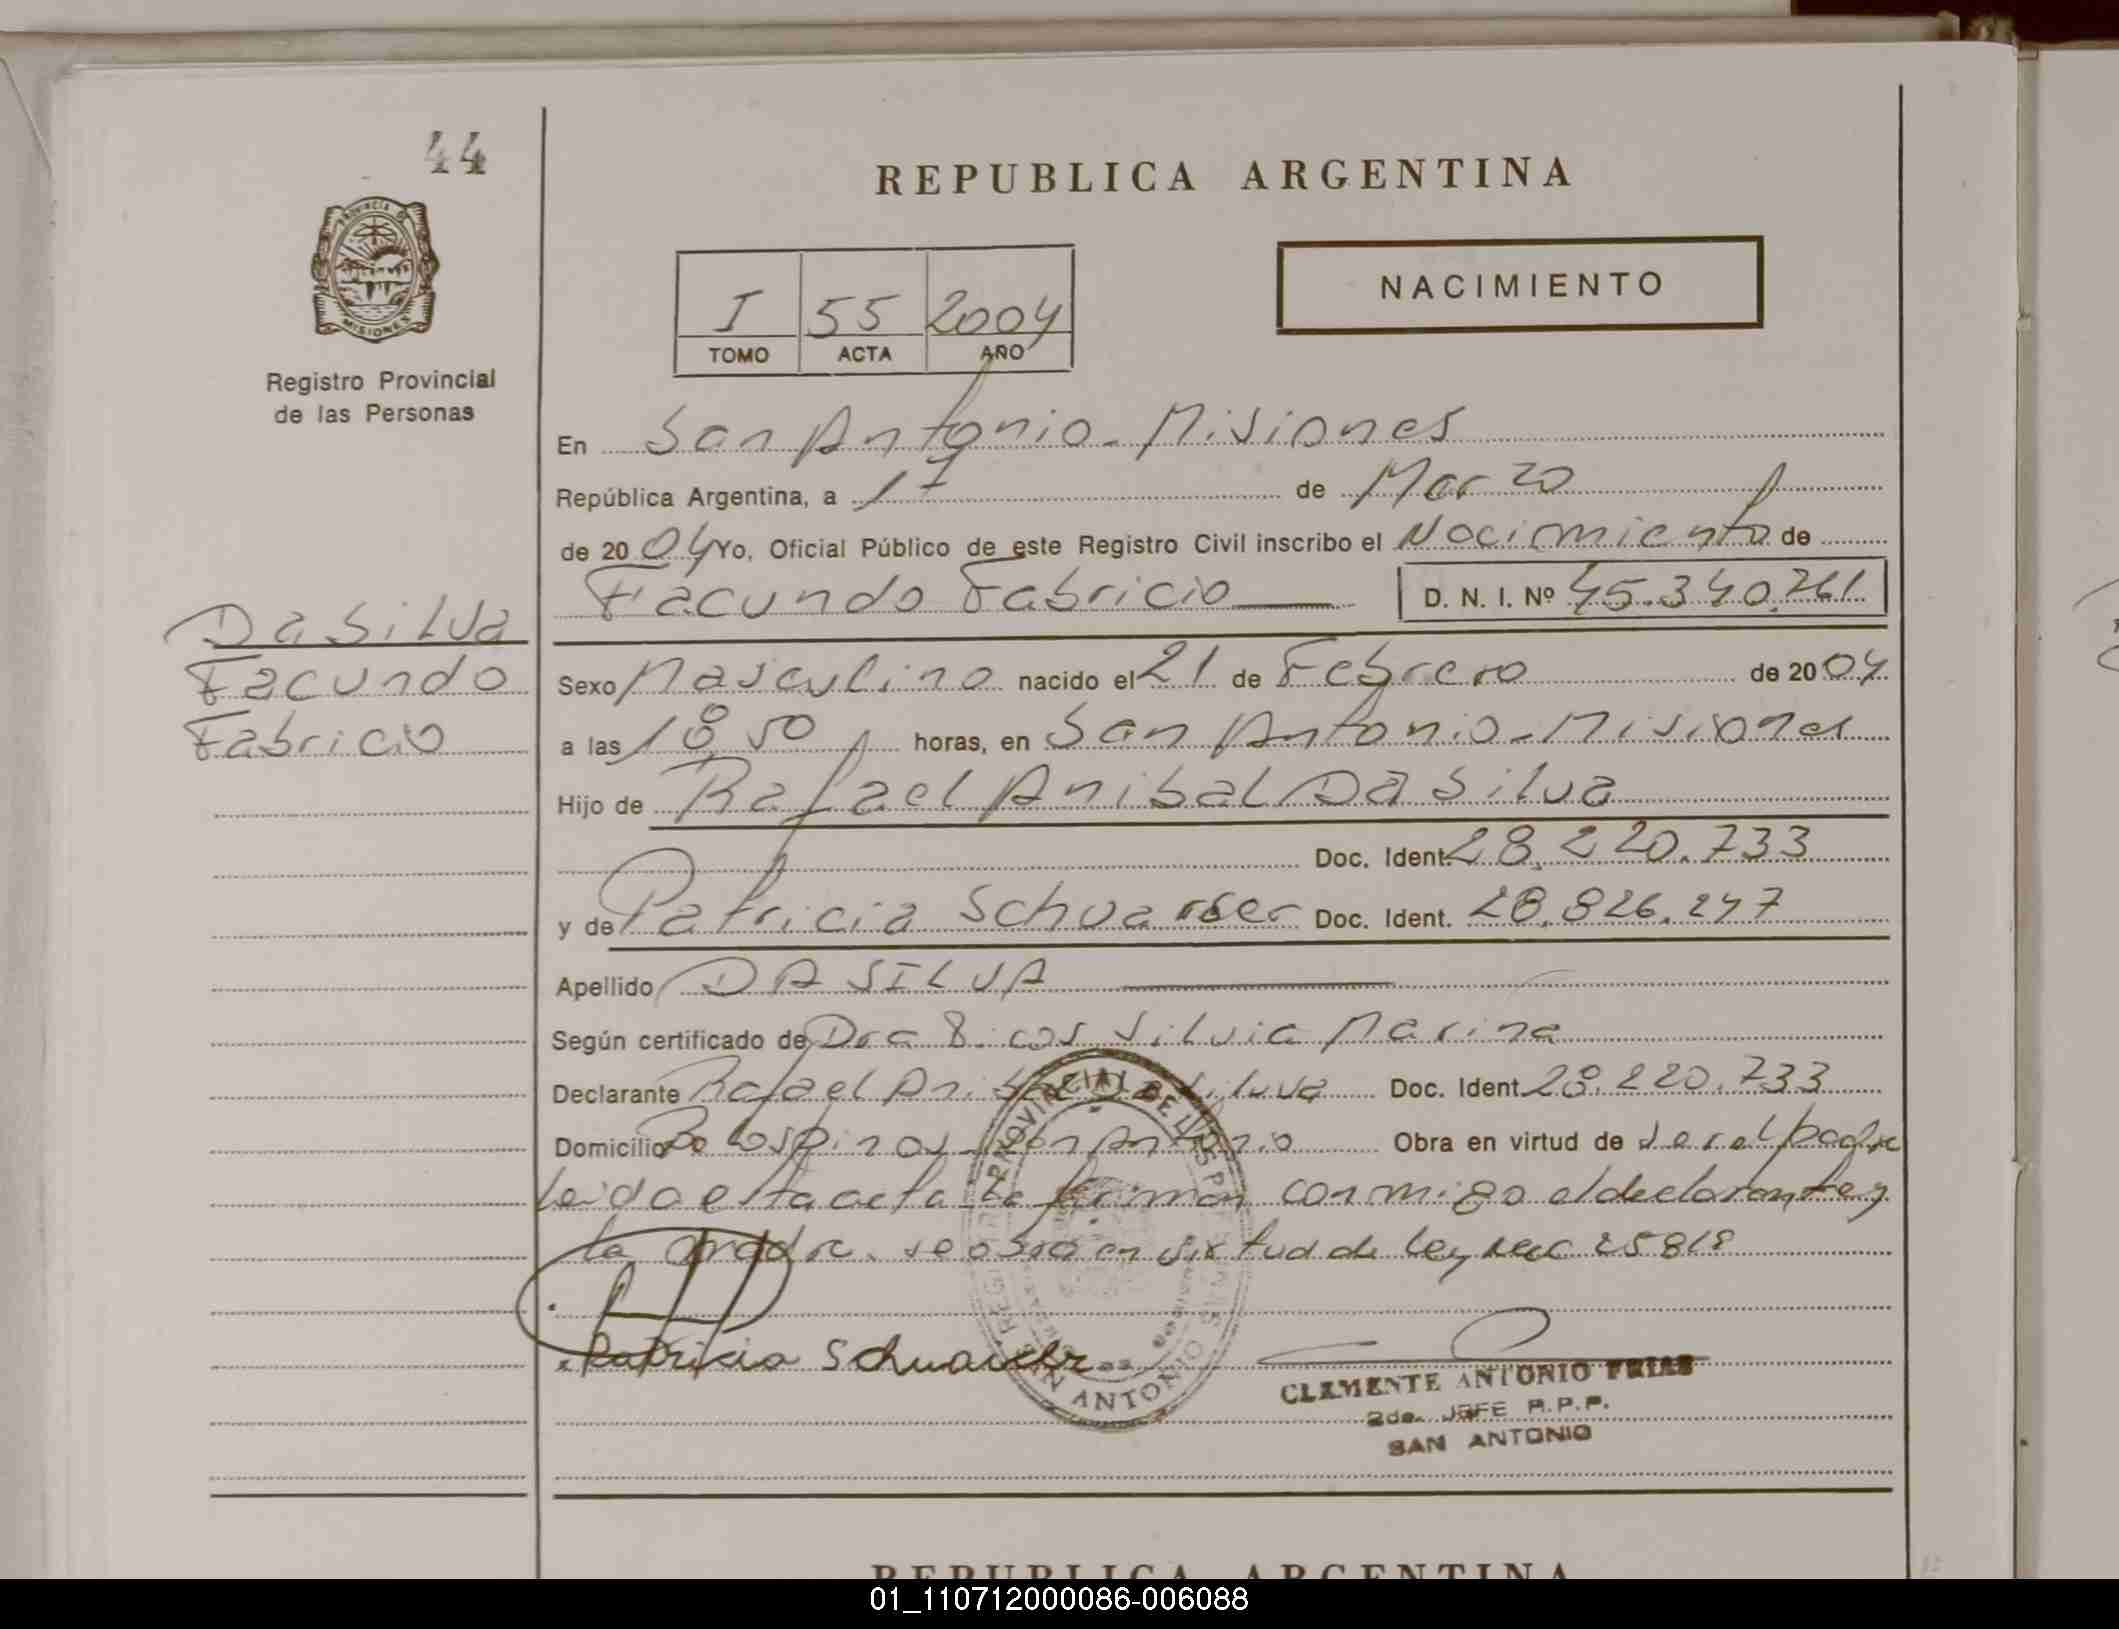 44
REPUBLICA ARGENTINA
PROVINCIA DE MISIONES
Registro Provincial
de las Personas
NACIMIENTO
I 55 2004
TOMO ACTA AÑO
En San Antonio - Misiones
República Argentina, a 17 de Marzo
de 2004 Yo, Oficial Público de este Registro Civil inscribo el Nacimiento de
Facundo Fabricio D. N. I. Nº 45.340.761
Da Silva
Facundo
Fabricio
Sexo Masculino nacido el 21 de Febrero de 2004
a las 18,50 horas, en San Antonio - Misiones
Hijo de Rafael Anibal Da Silva
Doc. Ident. 28.220.733
y de Patricia Doc. Ident. 28.826.247
Apellido DA SILVA
Según certificado de Dra Silvia Marina
Declarante Rafael Anibal Da Silva Doc. Ident. 28.220.733
Domicilio Bo Los Pinos - San Antonio Obra en virtud de ser el padre
Leida esta acta la firman conmigo el declarante y
la madre. se obro en virtud de ley 25818
Patricia
REGISTRO PROVINCIAL DE LAS PERSONAS
SAN ANTONIO
CLEMENTE ANTONIO FRIAS
2do. JEFE R.P.P.
SAN ANTONIO
REPUBLICA ARGENTINA
01_110712000086-006088